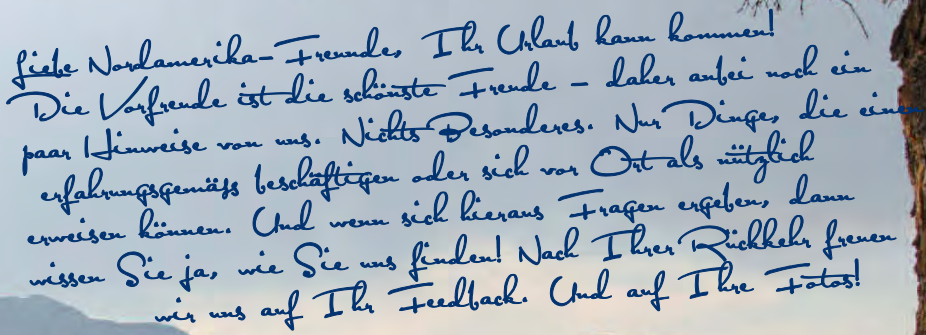 Liebe Nordamerika-Freunde, Ihr Urlaub kann kommen!
Die Vorfreude ist die schönste Freude – daher anbei noch ein
paar Hinweise von uns. Nichts Besonderes. Nur Dinge, die einen
erfahrungsgemäss beschäftigen oder sich vor Ort als nützlich
erweisen können. Und wenn sich hieraus Fragen ergeben, dann
wissen Sie ja, wie Sie uns finden! Nach Ihrer Rückkehr freuen
wir uns auf Ihr Feedback. Und auf Ihre Fotos!